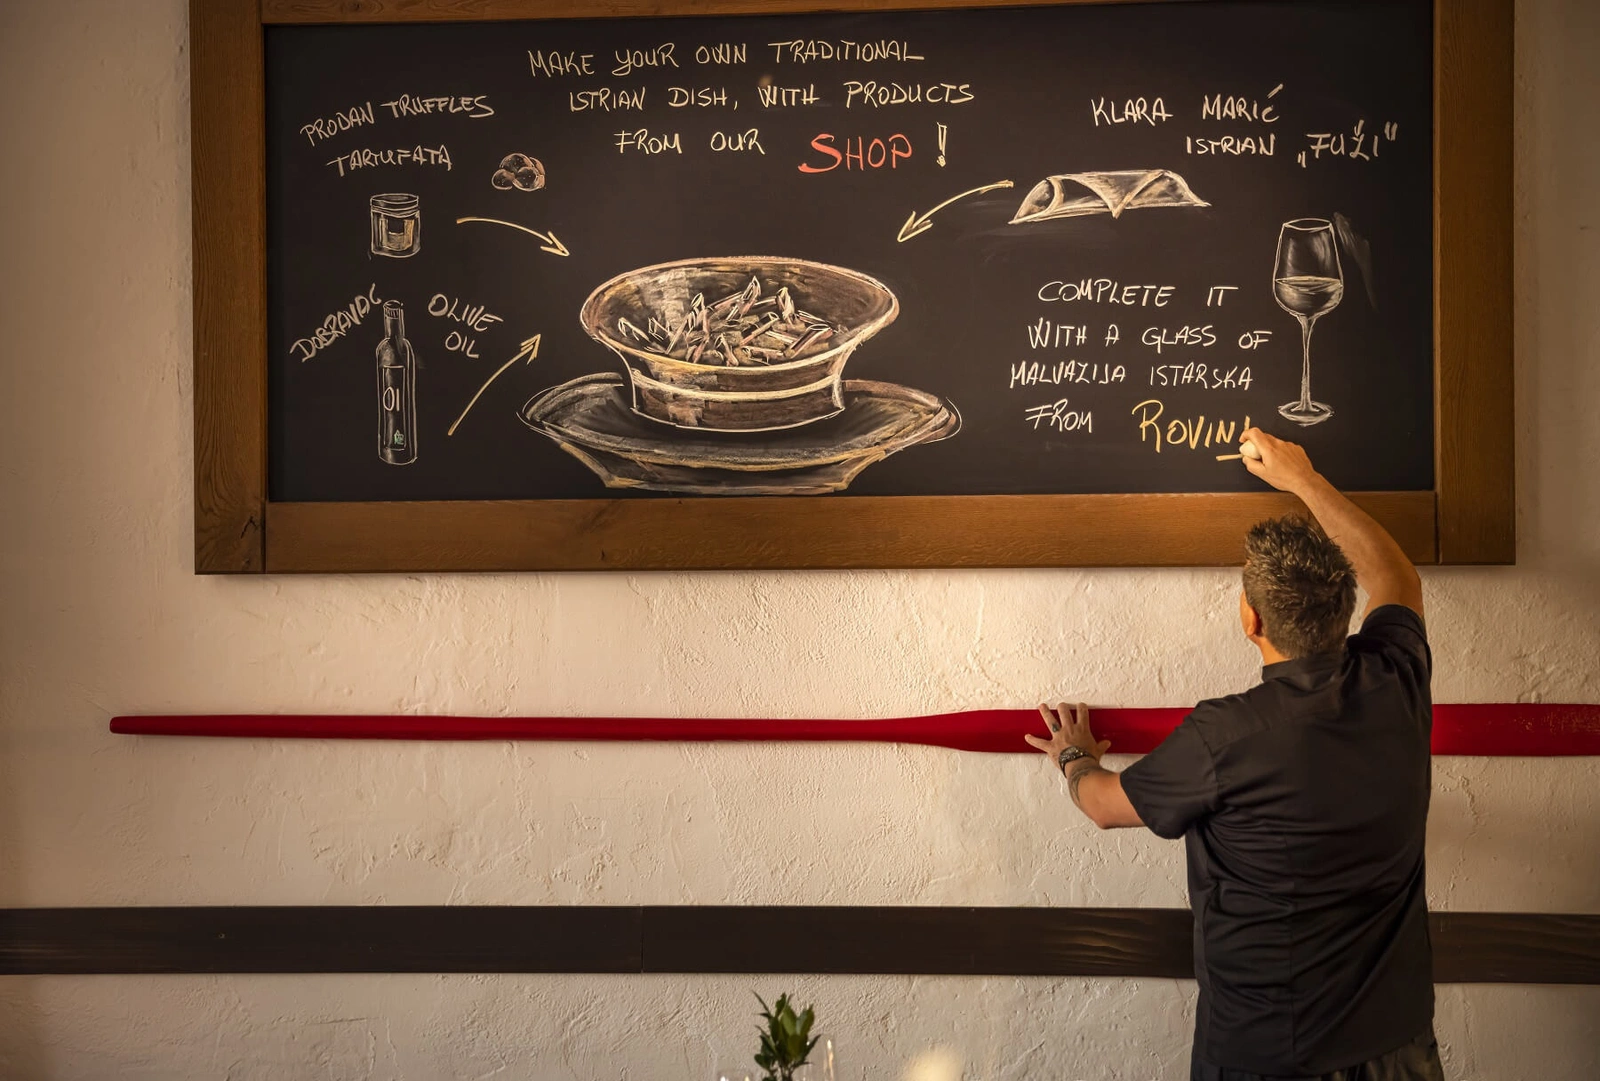 MAKE YOUR OWN TRADITIONAL
ISTRIAN DISH, WITH PRODUCTS
FROM OUR SHOP!
PRODAN TRUFFLES
TARTUFATA
KLARA MARIĆ
ISTRIAN „FUŽI"
DOBRAVAC
OLIVE
OIL
COMPLETE IT
WITH A GLASS OF
MALVAZIJA ISTARSKA
FROM ROVINJ